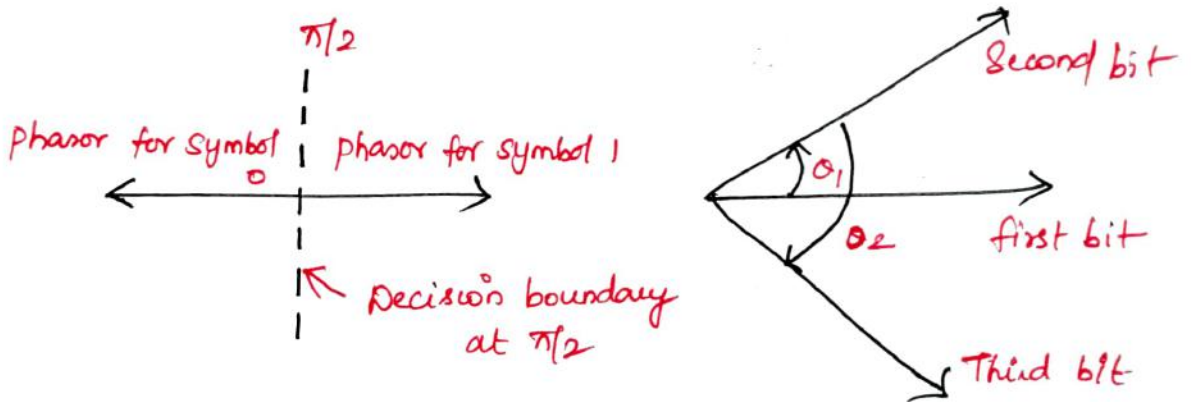 π/2
phasor for symbol 0
phasor for symbol 1
Decision boundary
at π/2
Second bit
θ1
first bit
θ2
Third bit